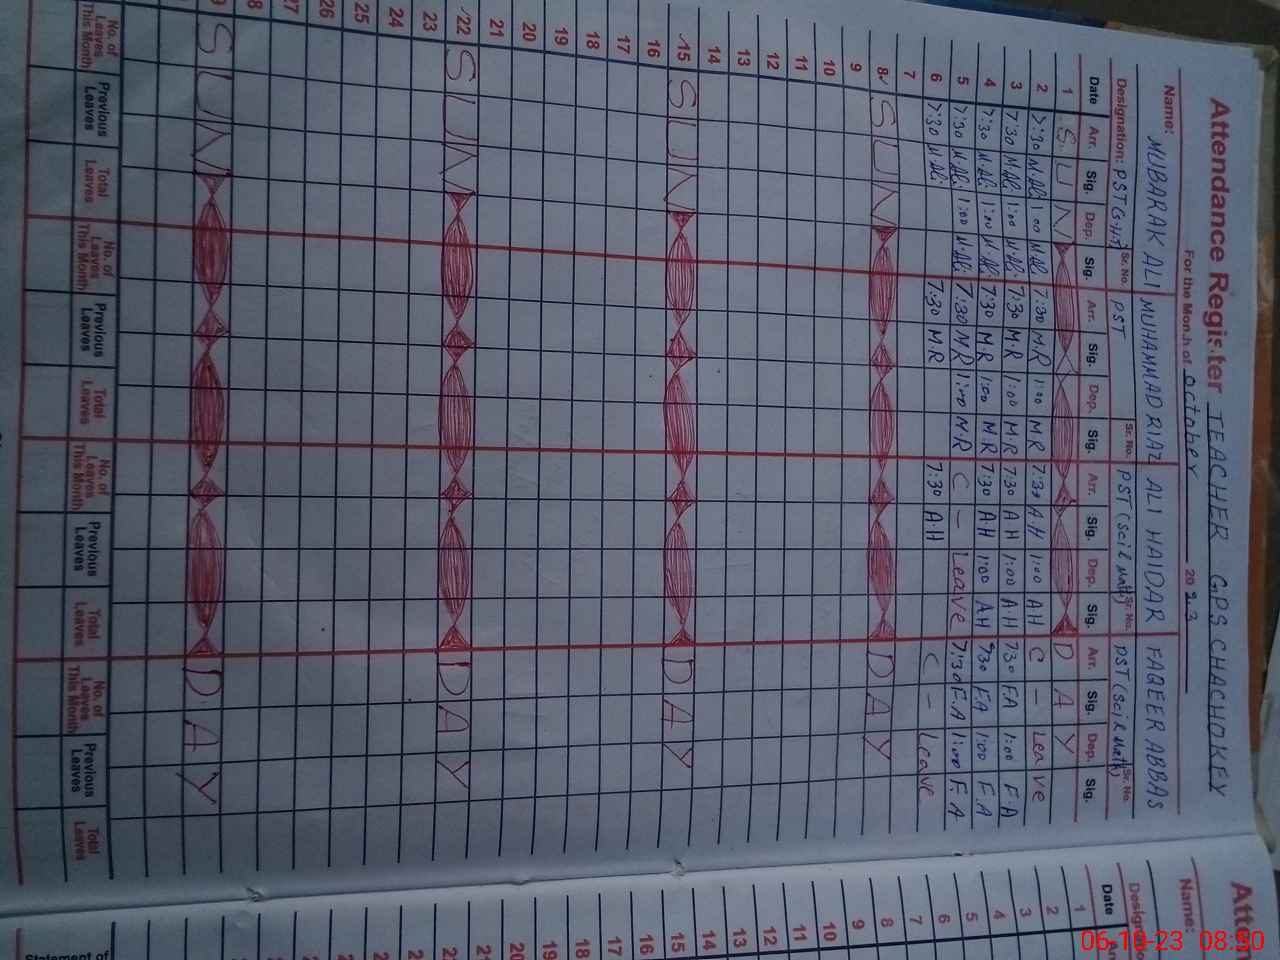 Attendance Register TEACHER GPS CHACHOKEY
For the Month of October 2023
Name: MUBARAK ALI MUHAMMAD RIAZ ALI HAIDAR FAQEER ABBAS
Designation: PST Sr. No. PST Sr. No. PST (Sci & Math) Sr. No. PST (Sci & Math) Sr. No.
Date Arr. Sig. Dep. Sig. Arr. Sig. Dep. Sig. Arr. Sig. Dep. Sig. Arr. Sig. Dep. Sig.
1 SUN DAY
2 7:30 M.Ali 1:00 M.Ali 7:30 M.R 1:00 M.R 7:30 A.H 1:00 AH C - Leave
3 7:30 M.Ali 1:00 M.Ali 7:30 M.R 1:00 M.R 7:30 A.H 1:00 A.H 7:30 F.A 1:00 F.A
4 7:30 M.Ali 1:00 M.Ali 7:30 M.R 1:00 M.R 7:30 A.H 1:00 A.H 7:30 F.A 1:00 F.A
5 7:30 M.Ali 1:00 M.Ali 7:30 M.R 1:00 M.R C - Leave 7:30 F.A 1:00 F.A
6 7:30 M.Ali 7:30 M.R 7:30 A.H C - Leave
7
8 SUN DAY
9
10
11
12
13
14
15 SUN DAY
16
17
18
19
20
21
22 SUN DAY
23
24
25
26
27
SUN DAY
No. of Leaves This Month Previous Leaves Total Leaves No. of Leaves This Month Previous Leaves Total Leaves No. of Leaves This Month Previous Leaves Total Leaves No. of Leaves This Month Previous Leaves Total Leaves
Name:
Date
1
2
3
4
5
6
7
8
9
10
11
12
13
14
15
16
17
18
19
20
Statement of
06-10-23 08:50